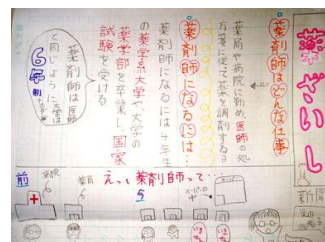 薬ざいし
薬剤師はどんな仕事
薬局や病院に勤め、医師の処
方薬に従って薬を調剤する
薬剤師になるには…
薬剤師になるには4年生
の薬学系大学や、大学の
薬学部を卒業し、国家
試験を受ける
薬剤師は医師
と同じように大学は
6年制
えっ、薬剤師って…
前
病院
薬局
スーパーの
5
新